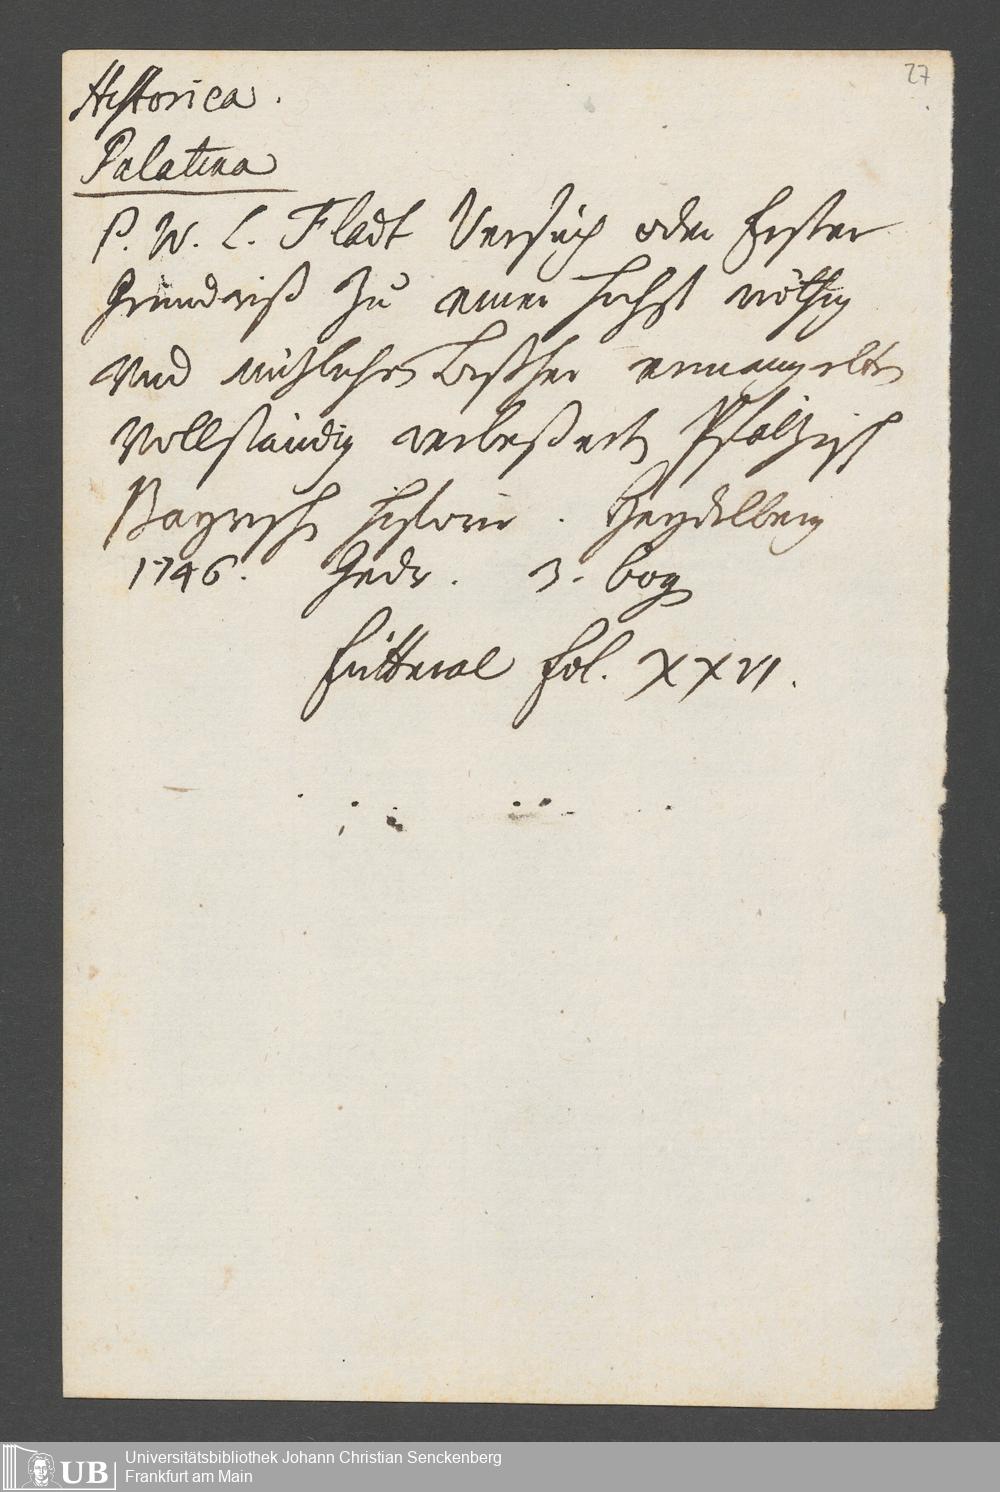 27
Historica.
Palatina
P. W. L. Fladt Versuch oder Erster
Grundriß zu einer höchst nöthig
und nüzlichen bißher ermangelten
Vollständig verbeßerten Pfältzisch
Bayrischen Historie. Heydelberg
1746. Gedr. 3. bog
Futteral Fol. XXVI.
UB
Universitätsbibliothek Johann Christian Senckenberg
Frankfurt am Main